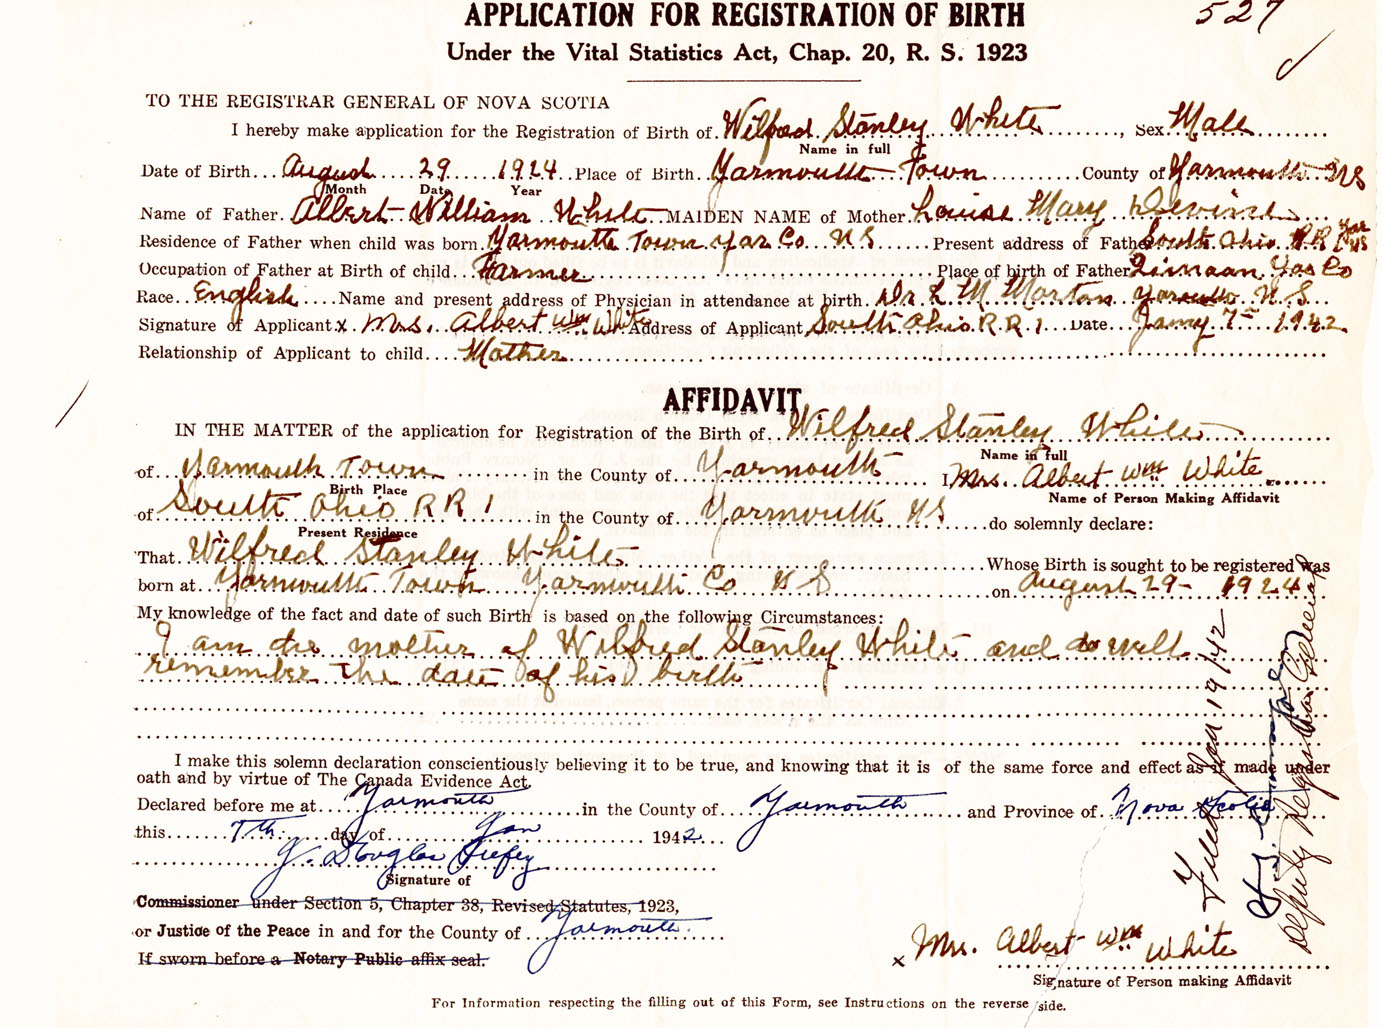 527
APPLICATION FOR REGISTRATION OF BIRTH
Under the Vital Statistics Act, Chap. 20, R. S. 1923
TO THE REGISTRAR GENERAL OF NOVA SCOTIA
I hereby make application for the Registration of Birth of Wilfred Stanley White, Sex Male
Name in full
Date of Birth August 29 1924 Place of Birth Yarmouth Town County of Yarmouth NS
Month Date Year
Name of Father Albert William White MAIDEN NAME of Mother Louise Mary Devine
Residence of Father when child was born Yarmouth Town Yar Co NS Present address of Father South Ohio RR 1 Yar NS
Occupation of Father at Birth of child Farmer Place of birth of Father Yar Co
Race English Name and present address of Physician in attendance at birth Dr L M Morton Yarmouth N.S.
Signature of Applicant x Mrs. Albert Wm White Address of Applicant South Ohio RR 1 Date Jany 7th 1942
Relationship of Applicant to child Mother
AFFIDAVIT
IN THE MATTER of the application for Registration of the Birth of Wilfred Stanley White
Name in full
of Yarmouth Town in the County of Yarmouth I Mrs. Albert Wm White
Birth Place Name of Person Making Affidavit
of South Ohio RR 1 in the County of Yarmouth NS do solemnly declare:
Present Residence
That Wilfred Stanley White Whose Birth is sought to be registered was
born at Yarmouth Town Yarmouth Co N S on August 29- 1924
My knowledge of the fact and date of such Birth is based on the following Circumstances:
I am the mother of Wilfred Stanley White and do well
remember the date of his birth
I make this solemn declaration conscientiously believing it to be true, and knowing that it is of the same force and effect as if made under
oath and by virtue of The Canada Evidence Act.
Declared before me at Yarmouth in the County of Yarmouth and Province of Nova Scotia
this 7th day of Jan 1942
Douglas
Signature of
Commissioner under Section 5, Chapter 38, Revised Statutes, 1923,
or Justice of the Peace in and for the County of Yarmouth
If sworn before a Notary Public affix seal.
x Mrs. Albert Wm White
Signature of Person making Affidavit
For Information respecting the filling out of this Form, see Instructions on the reverse side.
Filed Jan 19/42
Deputy Registrar General